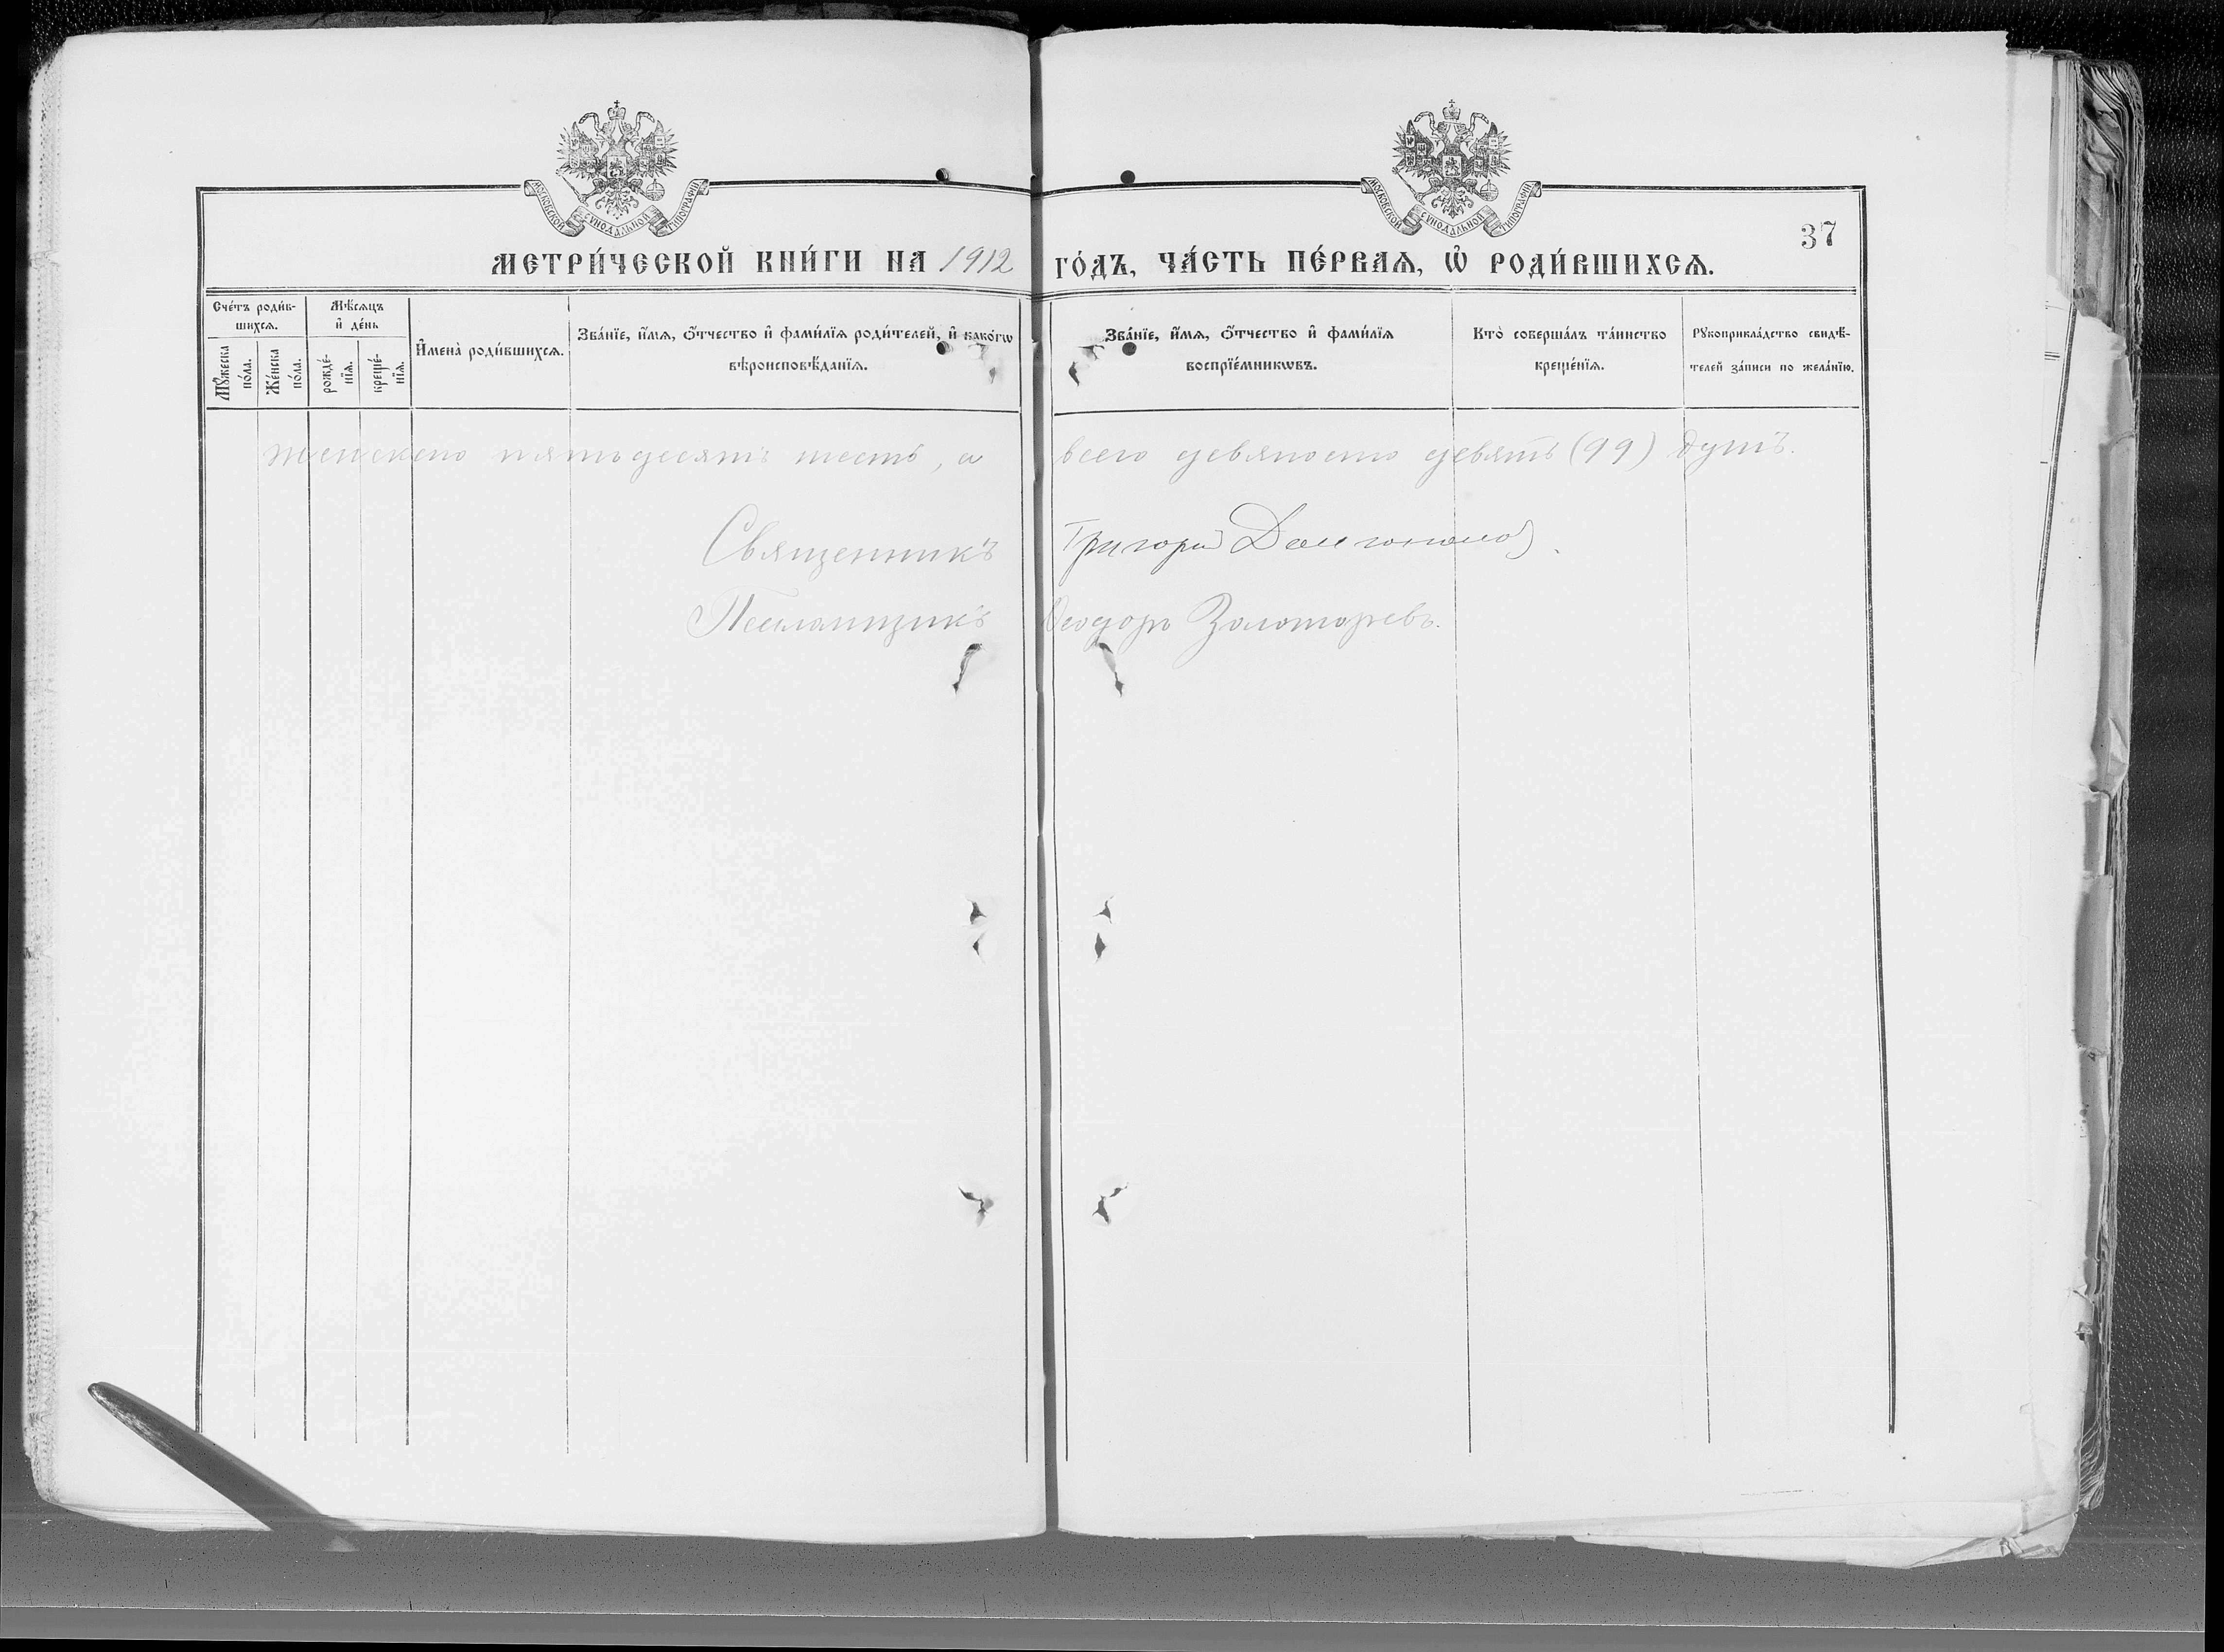 МОСКОВСКОЙ СУНОДАЛЬНОЙ ТИПОГРАФІИ
МОСКОВСКОЙ СУНОДАЛЬНОЙ ТИПОГРАФІИ
37
МЕТРИ́ЧЕСКОЙ КНИ́ГИ НА 1912 ГО́ДЪ, ЧА́СТЬ ПЕ́РВАѦ, Ѡ҆ РОДИ́ВШИХСѦ.
Сче́тъ роди́в-
шихсѧ.
Мѣ́сѧцъ
и҆ де́нь
Мꙋ́жеска
по́ла.
Же́нска
по́ла.
рожде́-
нїѧ.
креще́-
нїѧ.
И҆мена̀ роди́вшихсѧ.
Зва́нїе, и҆́мѧ, ѻ҆́тчество и҆ фами́лїѧ роди́телей, и҆ како́гѡ
вѣроисповѣ́данїѧ.
Зва́нїе, и҆́мѧ, ѻ҆́тчество и҆ фами́лїѧ
воспрїе́мникѡвъ.
Кто̀ соверша́лъ та́инство
креще́нїѧ.
Рꙋкоприкла́дство свидѣ́-
телей за́писи по жела́нїю.
женскаго пятьдесятъ шесть, а всего девяносто девять (99) душъ.
Священникъ Григорій
Псаломщикъ Ѳеодоръ Золоторевъ.